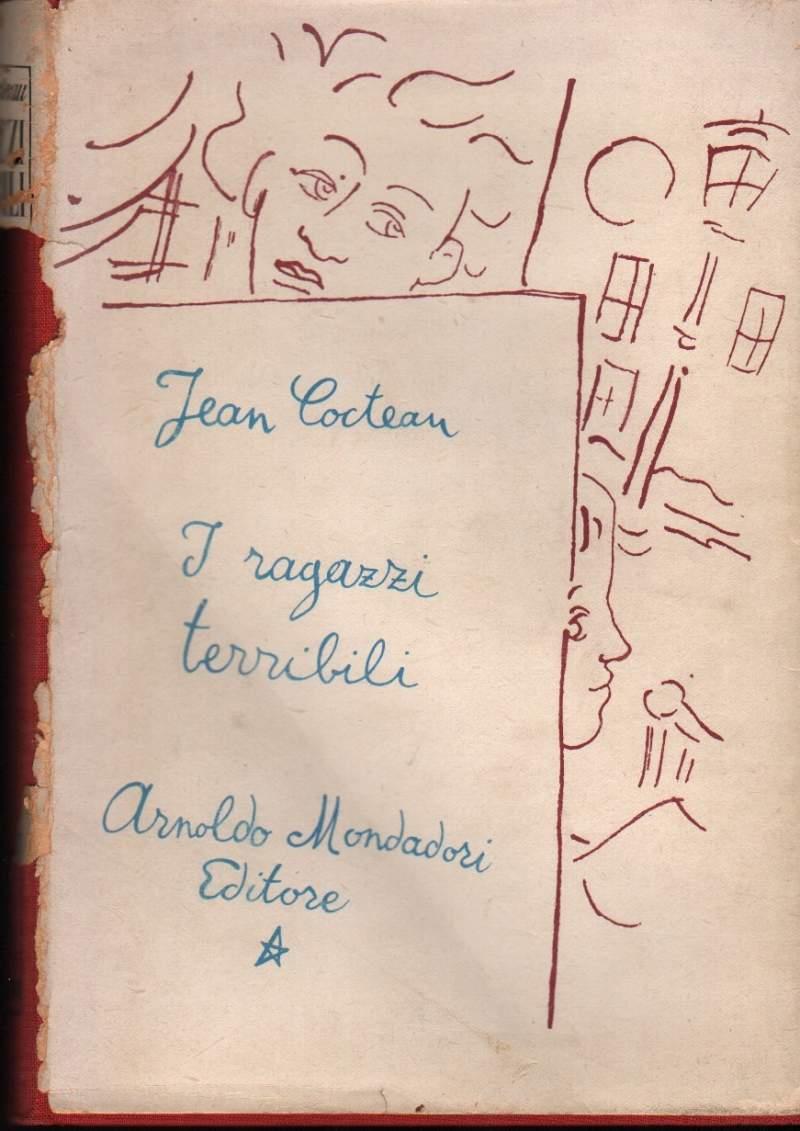 Jean Cocteau
I ragazzi
terribili
Arnoldo Mondadori
Editore